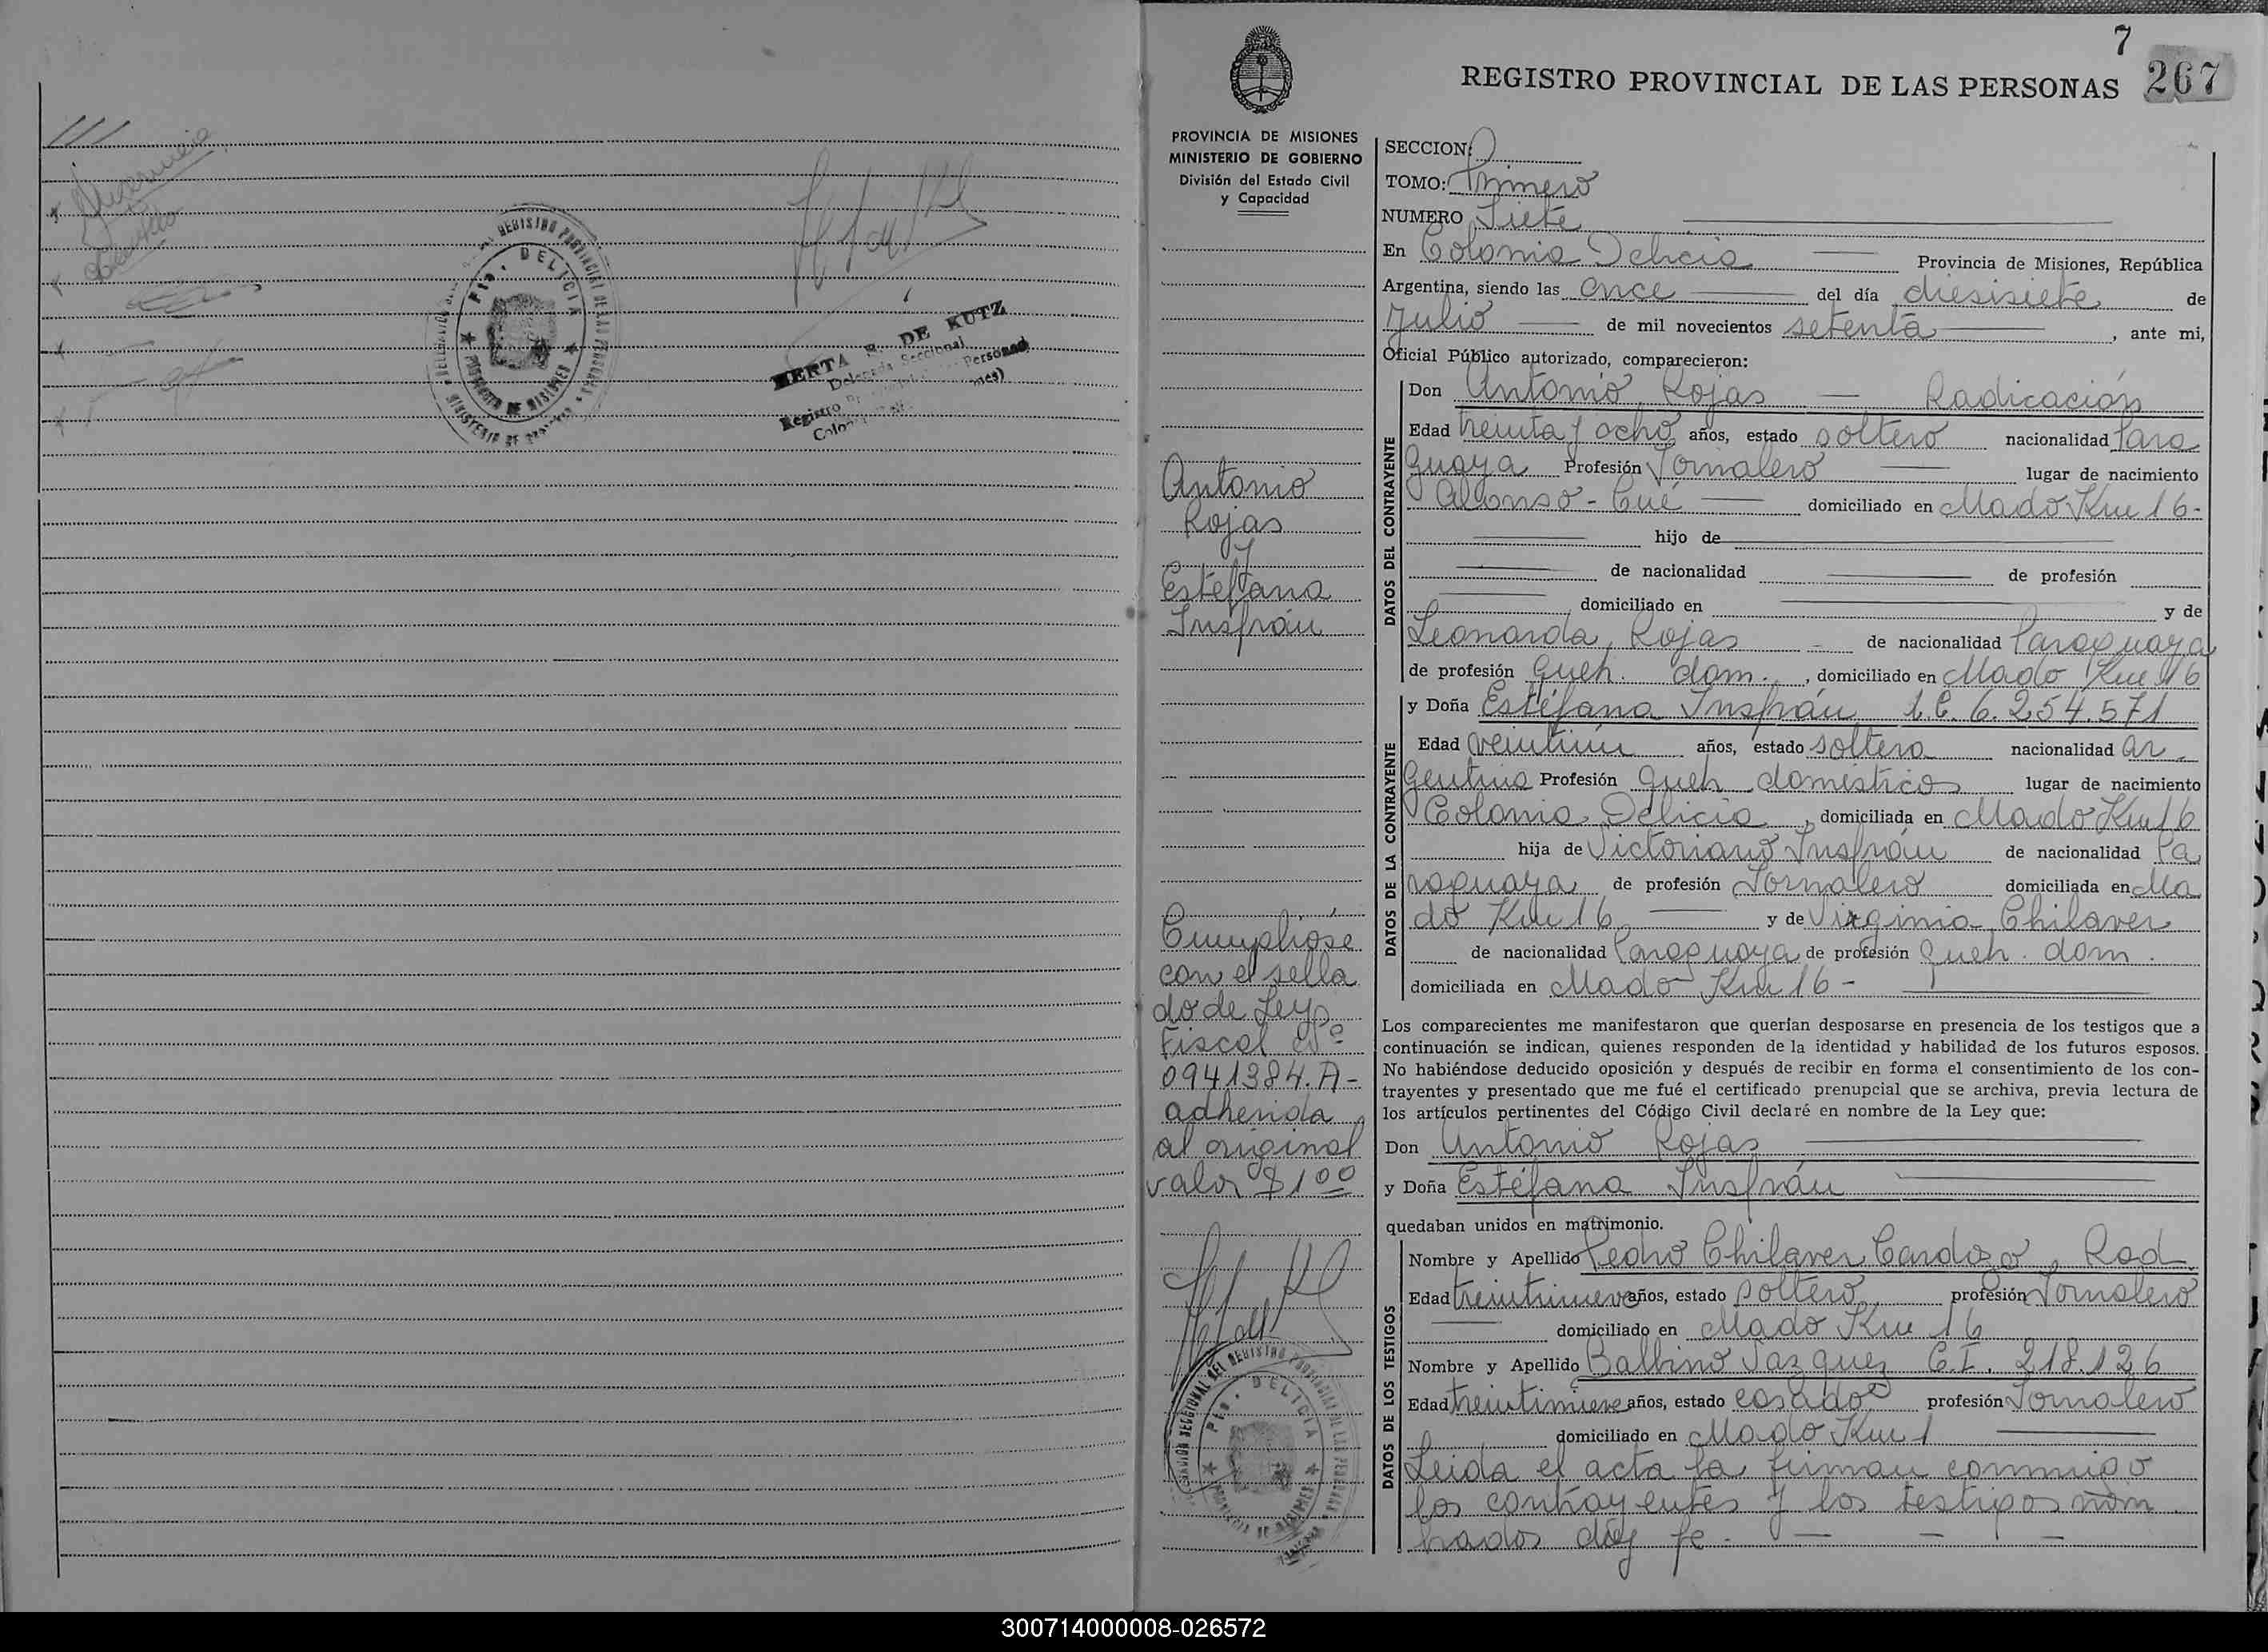 ///
REGISTRO PROVINCIAL
DELICIA
PROVINCIA DE MISIONES
HERTA S. DE KUTZ
Delegada Seccional
Registro
7
REGISTRO PROVINCIAL DE LAS PERSONAS 267
PROVINCIA DE MISIONES
MINISTERIO DE GOBIERNO
División del Estado Civil
y Capacidad
Antonio
Rojas
y
Estefana
Insfrán
Cumplióse
con el sella
do de Ley
Fiscal Nº
0941384.A-
adherida
al original
valor $ 100
DELICIA
SECCION:
TOMO: Primero
NUMERO Siete
En Colonia Delicia Provincia de Misiones, República
Argentina, siendo las once del día diesisiete de
Julio de mil novecientos setenta, ante mi,
Oficial Público autorizado, comparecieron:
DATOS DEL CONTRAYENTE
Don Antonio Rojas — Radicación
Edad treinta y ocho años, estado soltero nacionalidad Para
guaya Profesión Jornalero lugar de nacimiento
Alonso-Cué domiciliado en Mado Km 16-
hijo de
de nacionalidad de profesión
domiciliado en y de
Leonarda Rojas de nacionalidad Paraguaya
de profesión queh. dom., domiciliado en Mado Km 16
DATOS DE LA CONTRAYENTE
y Doña Estéfana Insfrán L.C. 6.254.571
Edad veintiun años, estado soltera nacionalidad ar
gentina Profesión queh domésticos lugar de nacimiento
Colonia Delicia, domiciliada en Mado Km 16
hija de Victoriano Insfrán de nacionalidad Pa
raguaya de profesión Jornalero domiciliada en Ma
do Km 16 y de Virginia Chilaver
de nacionalidad Paraguaya de profesión queh. dom.
domiciliada en Mado Km 16-
Los comparecientes me manifestaron que querían desposarse en presencia de los testigos que a
continuación se indican, quienes responden de la identidad y habilidad de los futuros esposos.
No habiéndose deducido oposición y después de recibir en forma el consentimiento de los con-
trayentes y presentado que me fué el certificado prenupcial que se archiva, previa lectura de
los artículos pertinentes del Código Civil declaré en nombre de la Ley que:
Don Antonio Rojas
y Doña Estéfana Insfrán
quedaban unidos en matrimonio.
DATOS DE LOS TESTIGOS
Nombre y Apellido Pedro Chilaver Cardozo, Rad.
Edad treintinueve años, estado soltero profesión Jornalero
domiciliado en Mado Km 16
Nombre y Apellido Balbino Vazquez C.I. 218.126
Edad treintinueve años, estado casado profesión Jornalero
domiciliado en Mado Km 1
Leida el acta la firman conmigo
los contrayentes y los testigos nom
brados doy fe.-
300714000008-026572